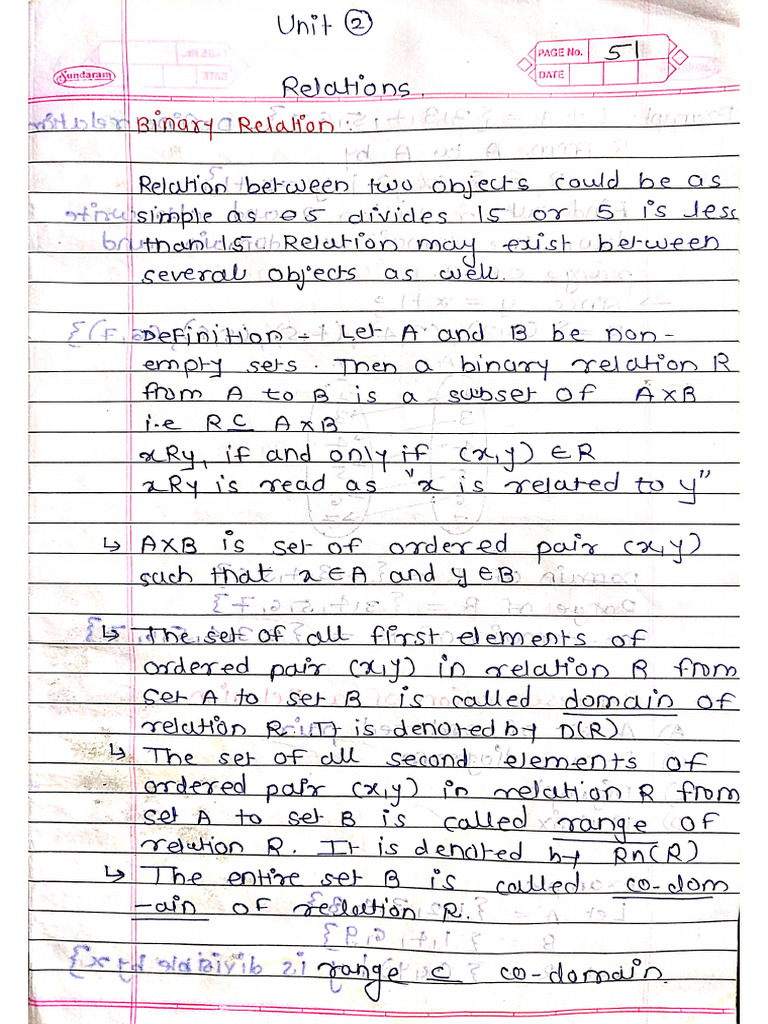 Unit ②
Sundaram
PAGE No. 51
DATE
Relations.
Binary Relation:
Relation between two objects could be as
simple as 5 divides 15 or 5 is less
than 15. Relation may exist between
several objects as well.
Definition - Let A and B be non-
empty sets. Then a binary relation R
from A to B is a subset of A×B
i.e R ⊆ A×B
xRy, if and only if (x,y) ∈ R
xRy is read as "x is related to y"
↳ A×B is set of ordered pair (x,y)
such that x ∈ A and y ∈ B
↳ The set of all first elements of
ordered pair (x,y) in relation R from
set A to set B is called domain of
relation R. It is denoted by D(R)
↳ The set of all second elements of
ordered pair (x,y) in relation R from
set A to set B is called range of
relation R. It is denoted by Rn(R)
↳ The entire set B is called co-dom
-ain of relation R.
range ⊆ co-domain.